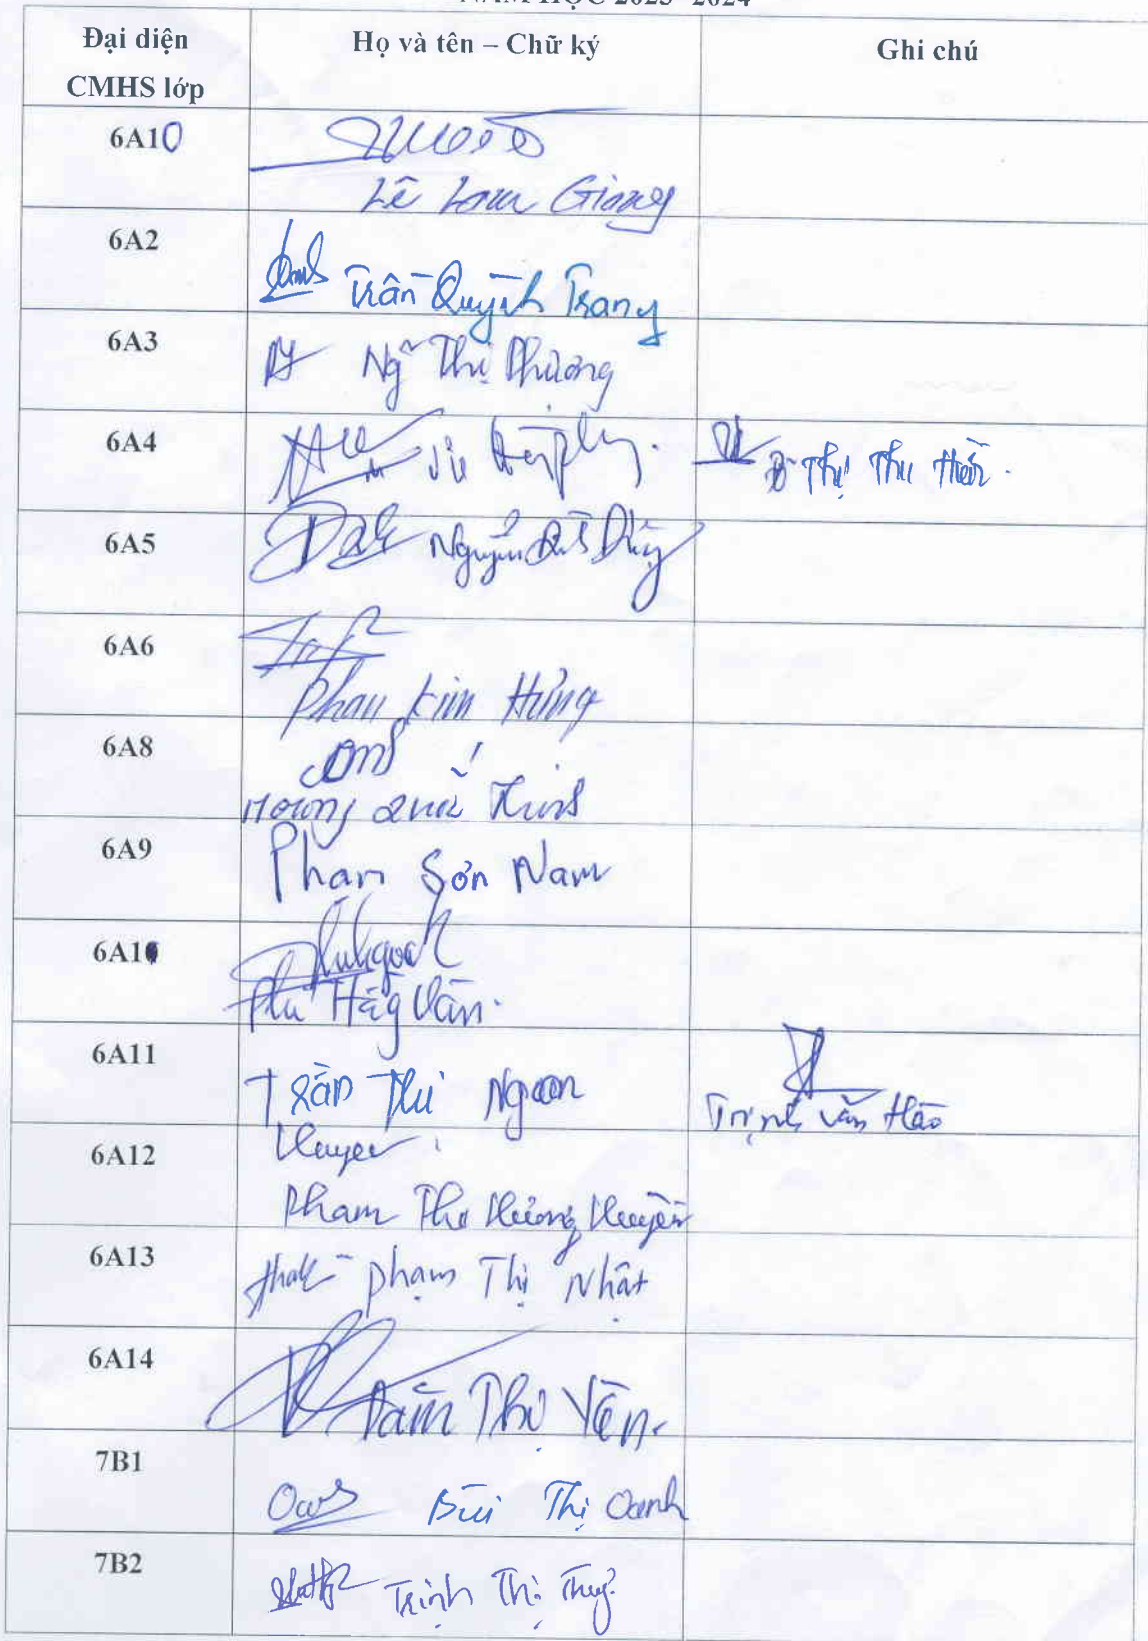 NĂM HỌC 2023 -2024
Đại diện
CMHS lớp
Họ và tên – Chữ ký
Ghi chú
6A10
Lê Lam Giang
6A2
Trần Quỳnh Trang
6A3
Ng~ Thị Phương
6A4
Vũ
Thị Thu Hiền
6A5
Nguyễn Dũng
6A6
Phan Kim Hưng
6A8
6A9
Phạm Sơn Nam
6A1
Vân
6A11
Trần Thị Ngoan
Trịnh Văn Hào
6A12
Phạm Thị Huyền
6A13
Phạm Thị Nhật
6A14
Đàm Thị Yến
7B1
Bùi Thị Oanh
7B2
Trịnh Thị Thuỷ